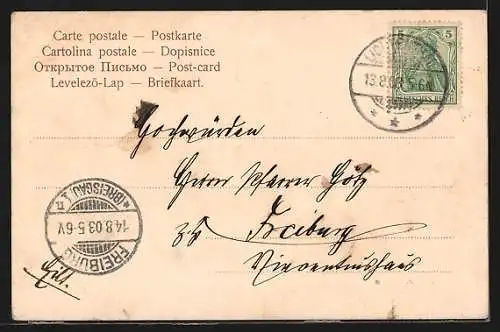 Carte postale — Postkarte
Cartolina postale — Dopisnice
Открытое Письмо — Post-card
Levelező-Lap — Briefkaart.
5 5
13.8.03.5-6N
Hochwürden
Herrn Pfarrer Götz
zZ Freiburg
Vincentiushaus
FREIBURG
14.8.03.5-6V
* (BREISGAU) 1. n
Eilt.